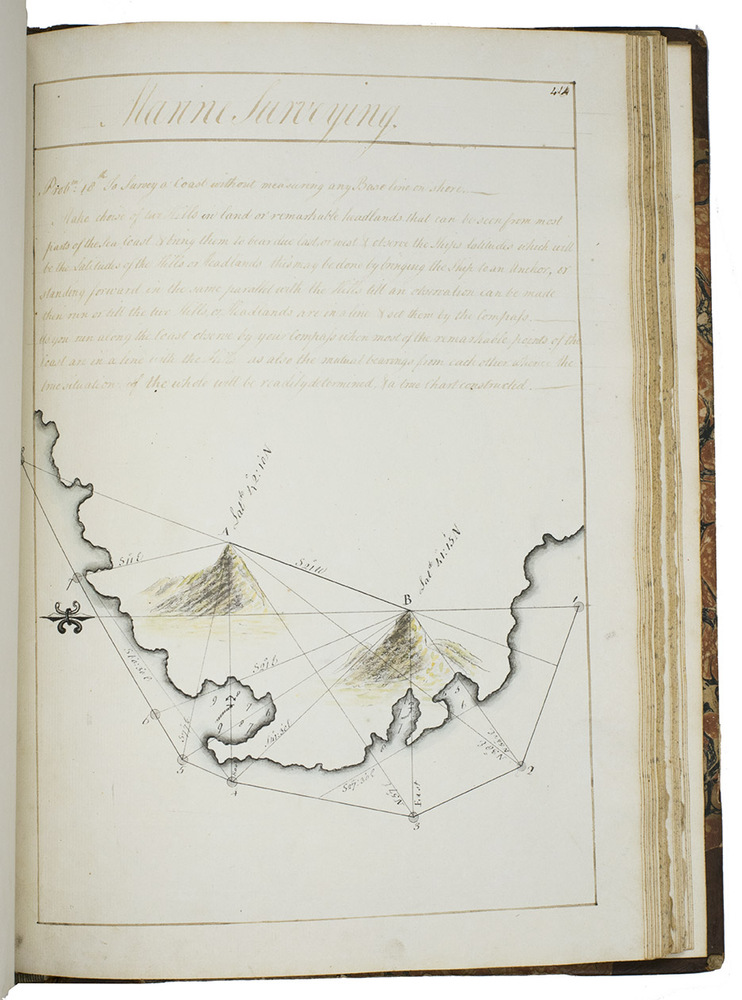 414
Marine Surveying.
Prob.m 18th To Survey a Coast without measuring any Base line on shore.
Make choise of two Hills in land or remarkable headlands that can be seen from most
parts of the Sea Coast & bring them to bear due East or West & observe the Ships latitudes which will
be the latitudes of the Hills or headlands this may be done by bringing the Ship to an Anchor, or
standing forward in the same parallel with the Hills till an observation can be made
then run on till the two Hills or headlands are in a line & set them by the Compass.
As you run along the Coast observe by your Compass when most of the remarkable points of the
Coast are in a line with the Hills as also the mutual bearings from each other whence the
true situation of the whole will be readily determined & a true Chart constructed.
A
Lat.de 42°:10'N
B
Lat.de 41°:15'N
East